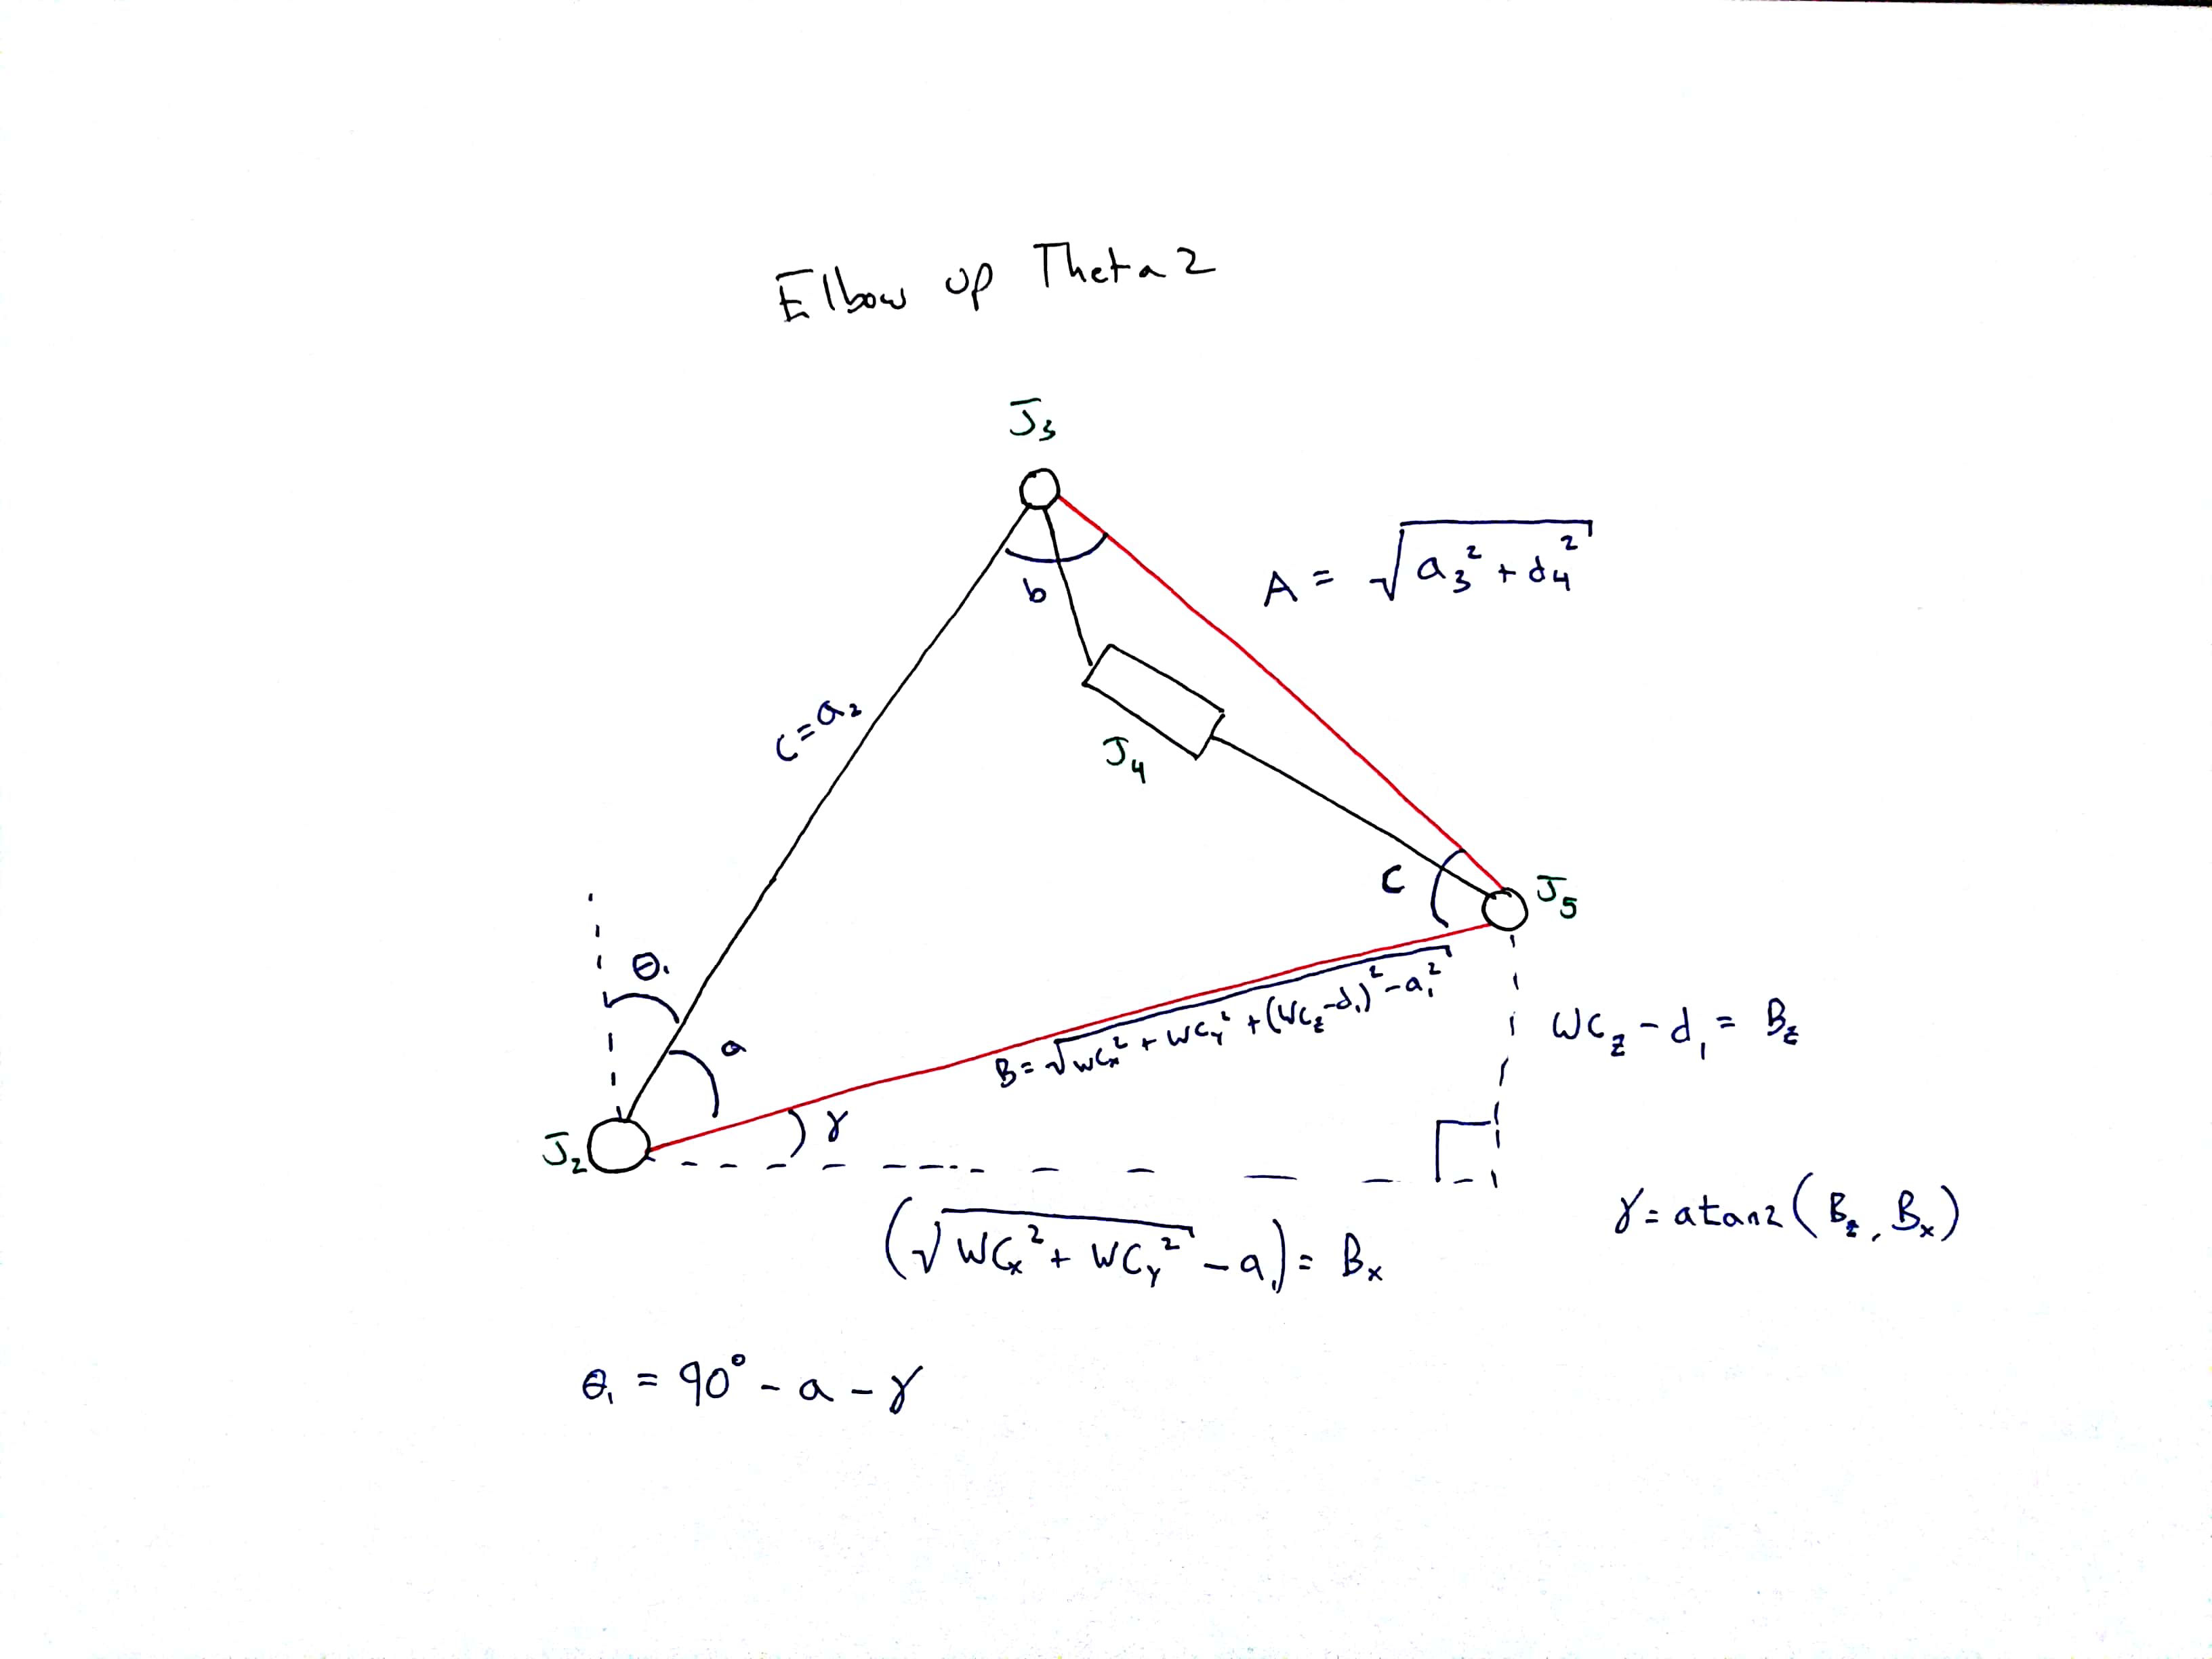 Elbow up Theta 2
J₃
A = √(a₃² + d₄²)
b
C = a₂
J₄
C
J₅
θ₁
a
B = √(WCx² + WCy² + (WCz - d₁)² - a₁²)
WCz - d₁ = Bz
γ
J₂
(√(WCx² + WCy²) - a₁) = Bx
γ = atan2(Bz, Bx)
θ₁ = 90° - a - γ